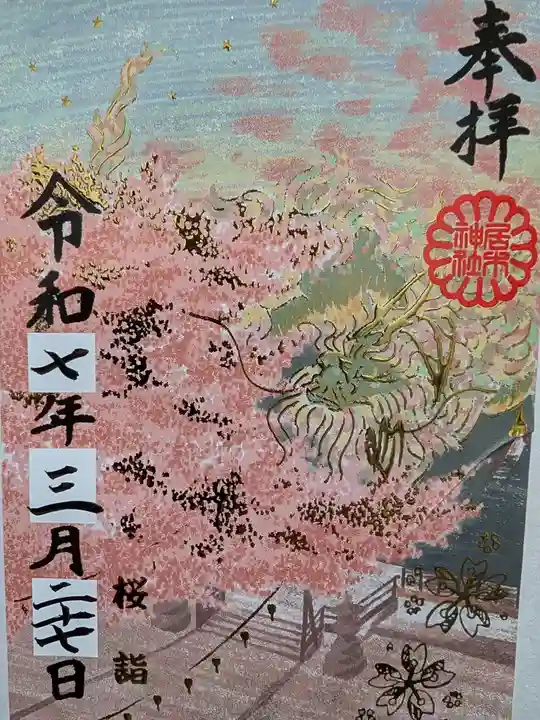 奉拝
居木神社
桜詣
令和七年三月二十七日